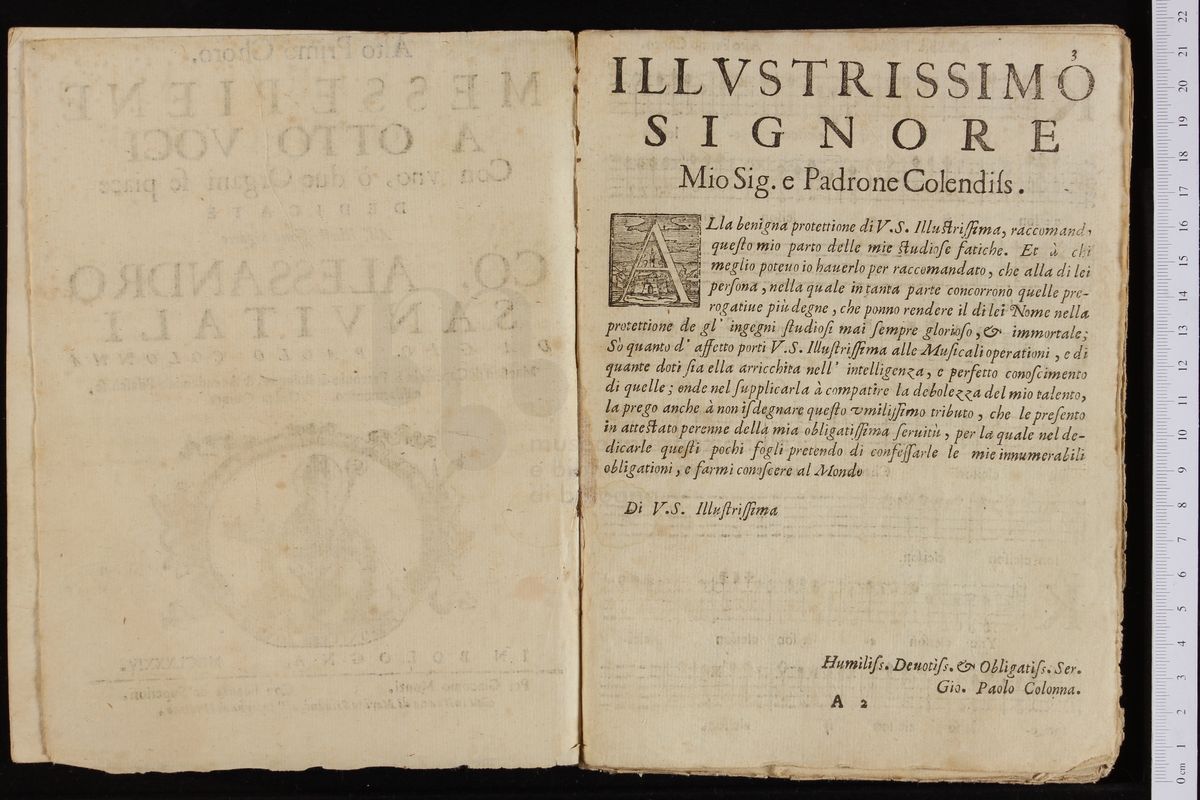 Alto Primo Choro.
MESSE PIENE
A OTTO VOCI
Con vno, ò due Organi se piace
DEDICATE
CO: ALESSANDRO
SANVITALI
DA GIO. PAOLO COLONNA
IN BOLOGNA MDCLXXXIV.
Per Giacomo Monti,
3
ILLVSTRISSIMO
SIGNORE
Mio Sig. e Padrone Colendiſs.
ALla benigna protettione di V.S. Illuſtriſſima, raccomando
queſto mio parto delle mie ſtudioſe fatiche. Et à chi
meglio potevo io hauerlo per raccomandato, che alla di lei
perſona, nella quale in tanta parte concorrono quelle pre-
rogatiue più degne, che ponno rendere il di lei Nome nella
protettione de gl' ingegni ſtudioſi mai ſempre glorioſo, & immortale;
Sò quanto d' affetto porti V.S. Illuſtriſſima alle Muſicali operationi, e di
quante doti ſia ella arricchita nell' intelligenza, e perfetto conoſcimento
di quelle; onde nel ſupplicarla à compatire la debolezza del mio talento,
la prego anche à non iſdegnare queſto vmiliſſimo tributo, che le preſento
in atteſtato perenne della mia obligatiſſima ſeruitù, per la quale nel de-
dicarle queſti pochi fogli pretendo di confeſſarle le mie innumerabili
obligationi, e farmi conoſcere al Mondo
Di V.S. Illuſtriſſima
Humiliſs. Deuotiſs. & Obligatiſs. Ser.
Gio. Paolo Colonna.
A 2